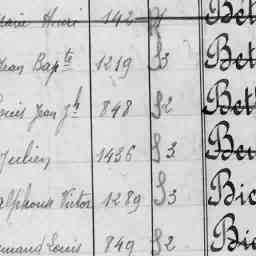 Henri 142
Jean Bapte 1219 S3 Bet
Louis Jean Jh 848 S2 Bet
Julien 1436 S3
Alphonse Victor 1289 S3 Bic
Louis 849 S2 Bic